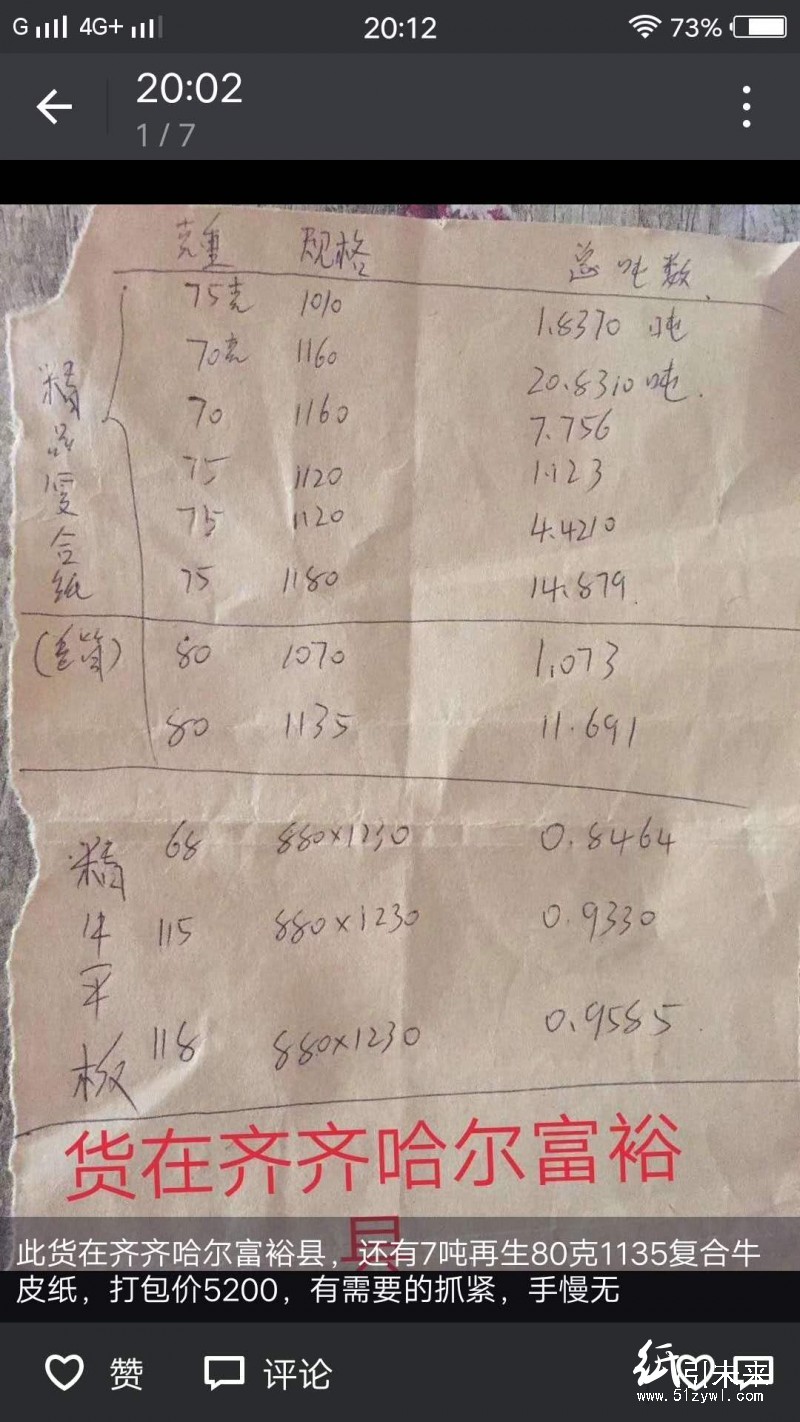 G 4G+ 20:12 73%
20:02
1 / 7
克重 规格 总吨数
75克 1010 1.8370 吨
70克 1160 20.8310吨.
70 1160 7.756
75 1120 1.123
75 1120 4.4210
75 1180 14.879
精品复合纸
80 1070 1.073
80 1135 11.691
68 880×1230 0.8464
115 880×1230 0.9330
118 880×1230 0.9585
精牛平板
货在齐齐哈尔富裕
县
此货在齐齐哈尔富裕县，还有7吨再生80克1135复合牛
皮纸，打包价5200，有需要的抓紧，手慢无
赞 评论
纸引未来
www.51zywl.com